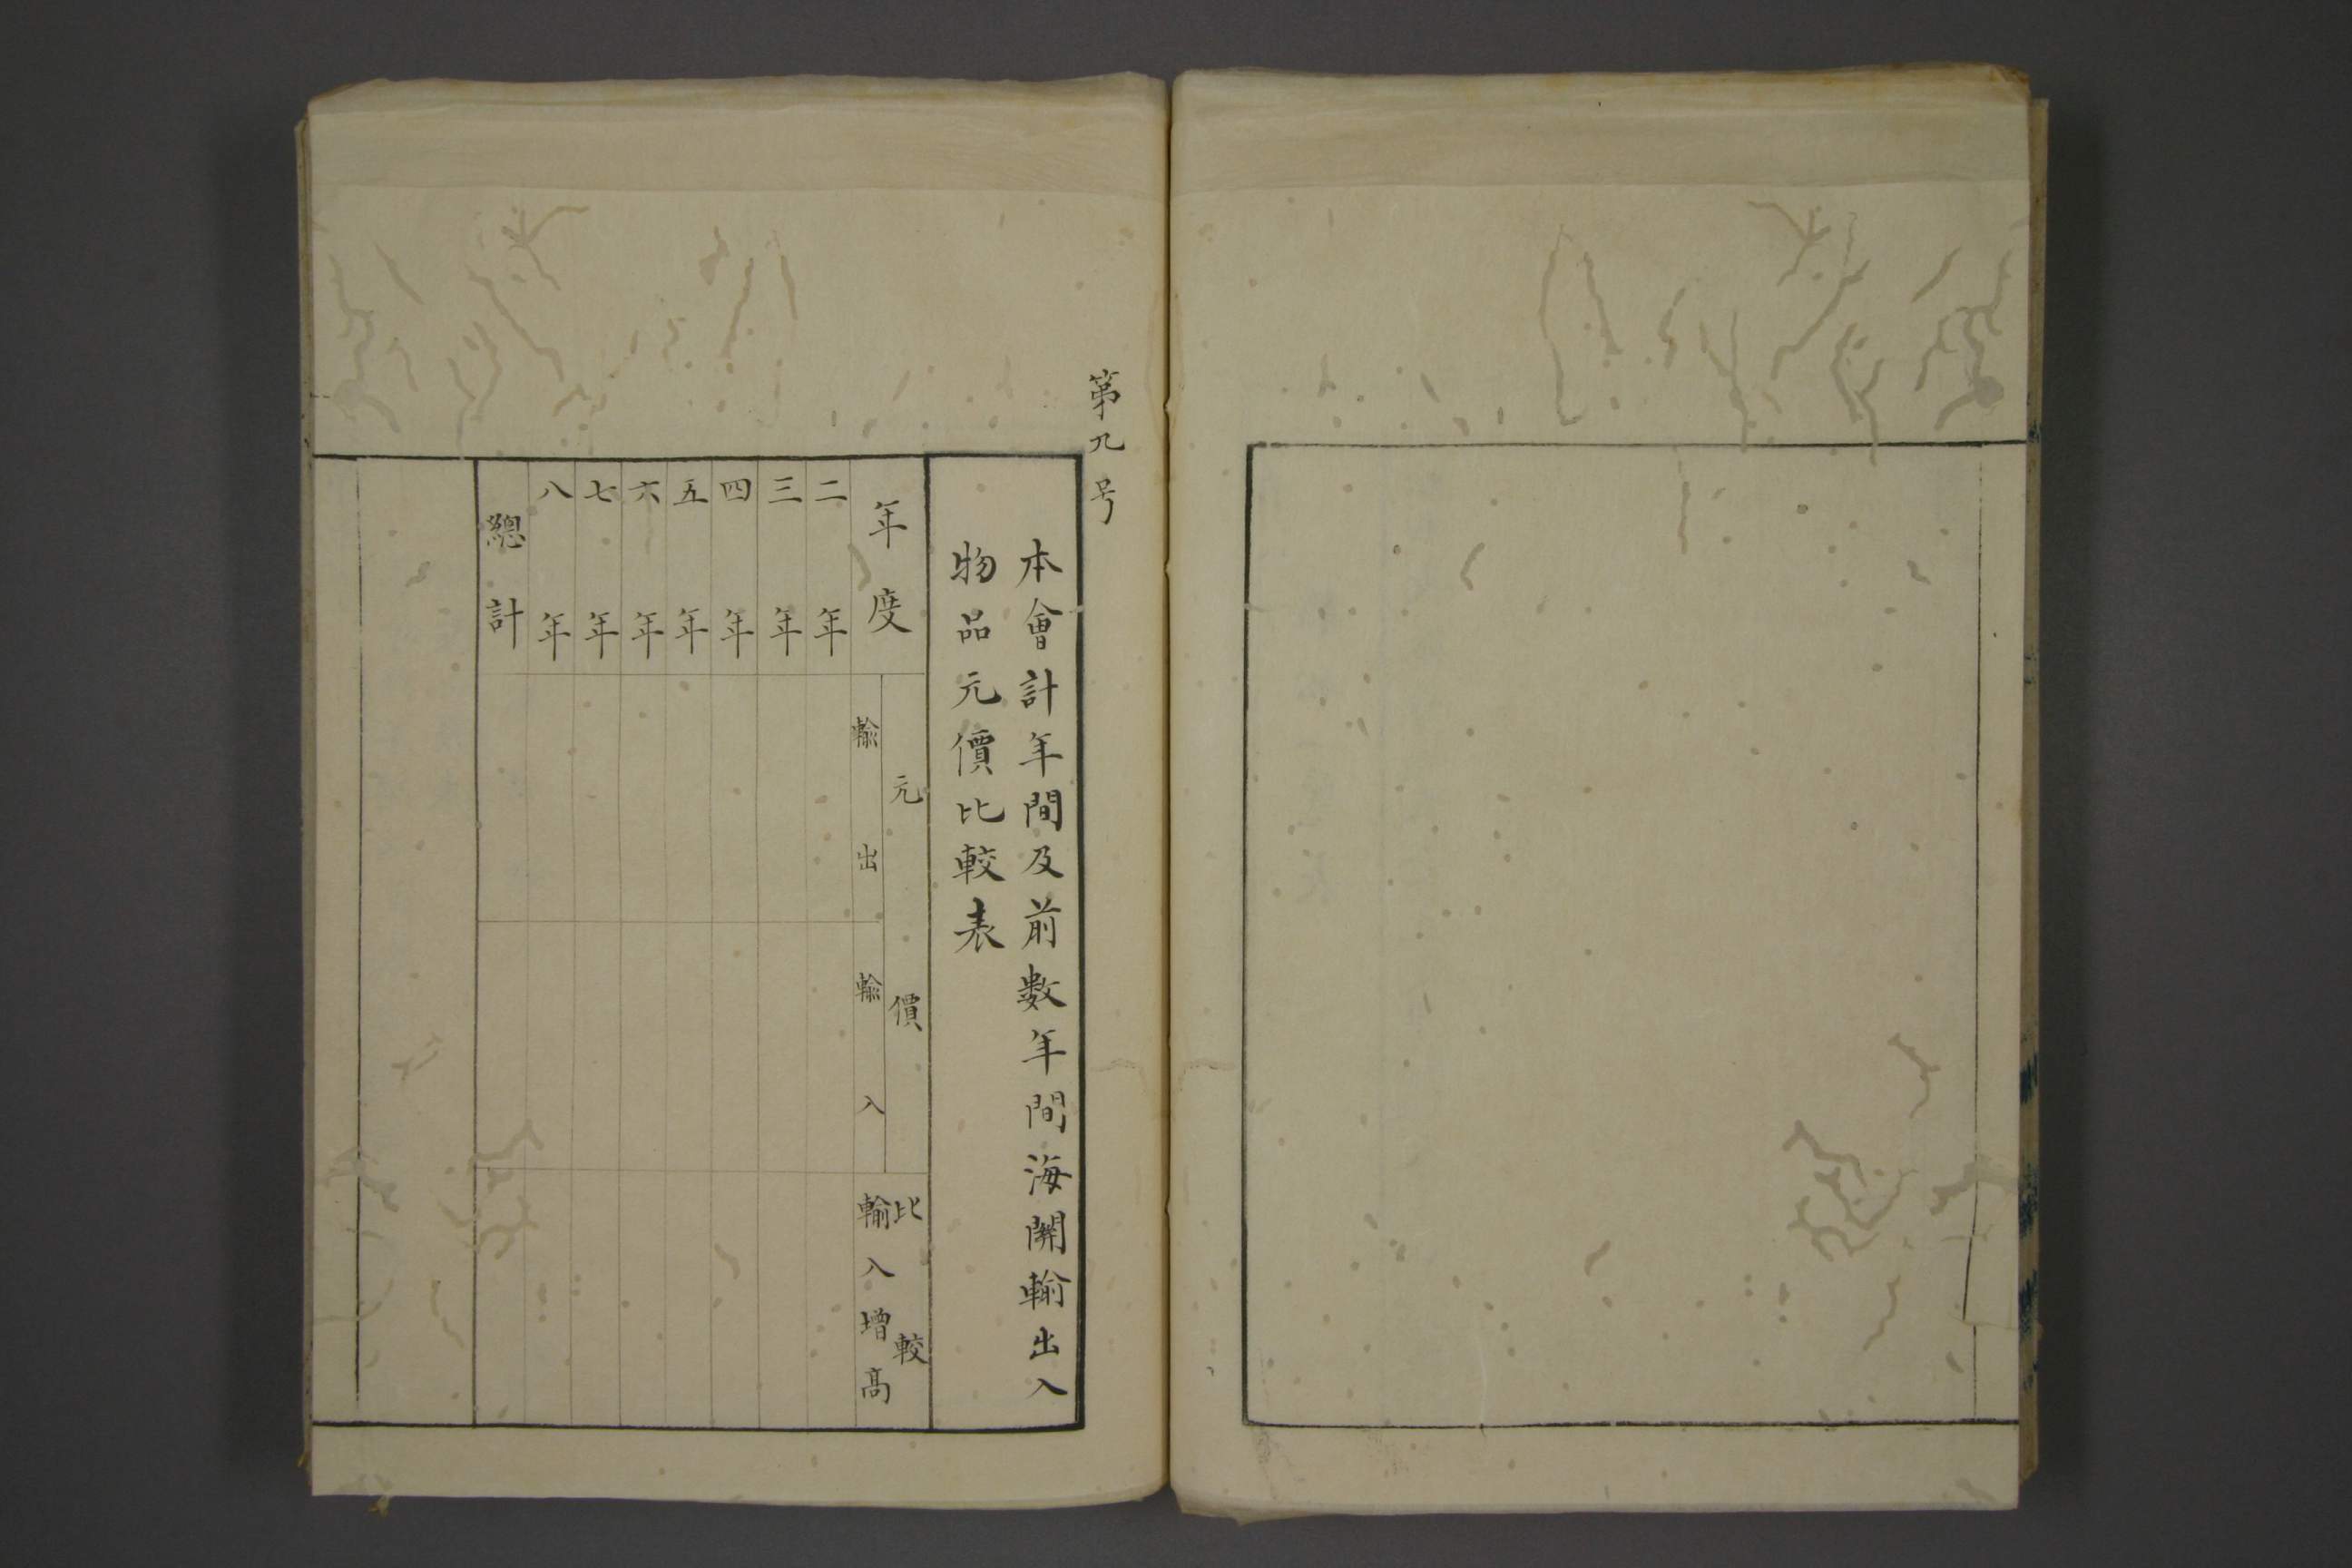 第九号
本會計年間及前數年間海關輸出入
物品元價比較表
年度
元價
輸出
輸入
比較
輸入増高
二年
三年
四年
五年
六年
七年
八年
總計